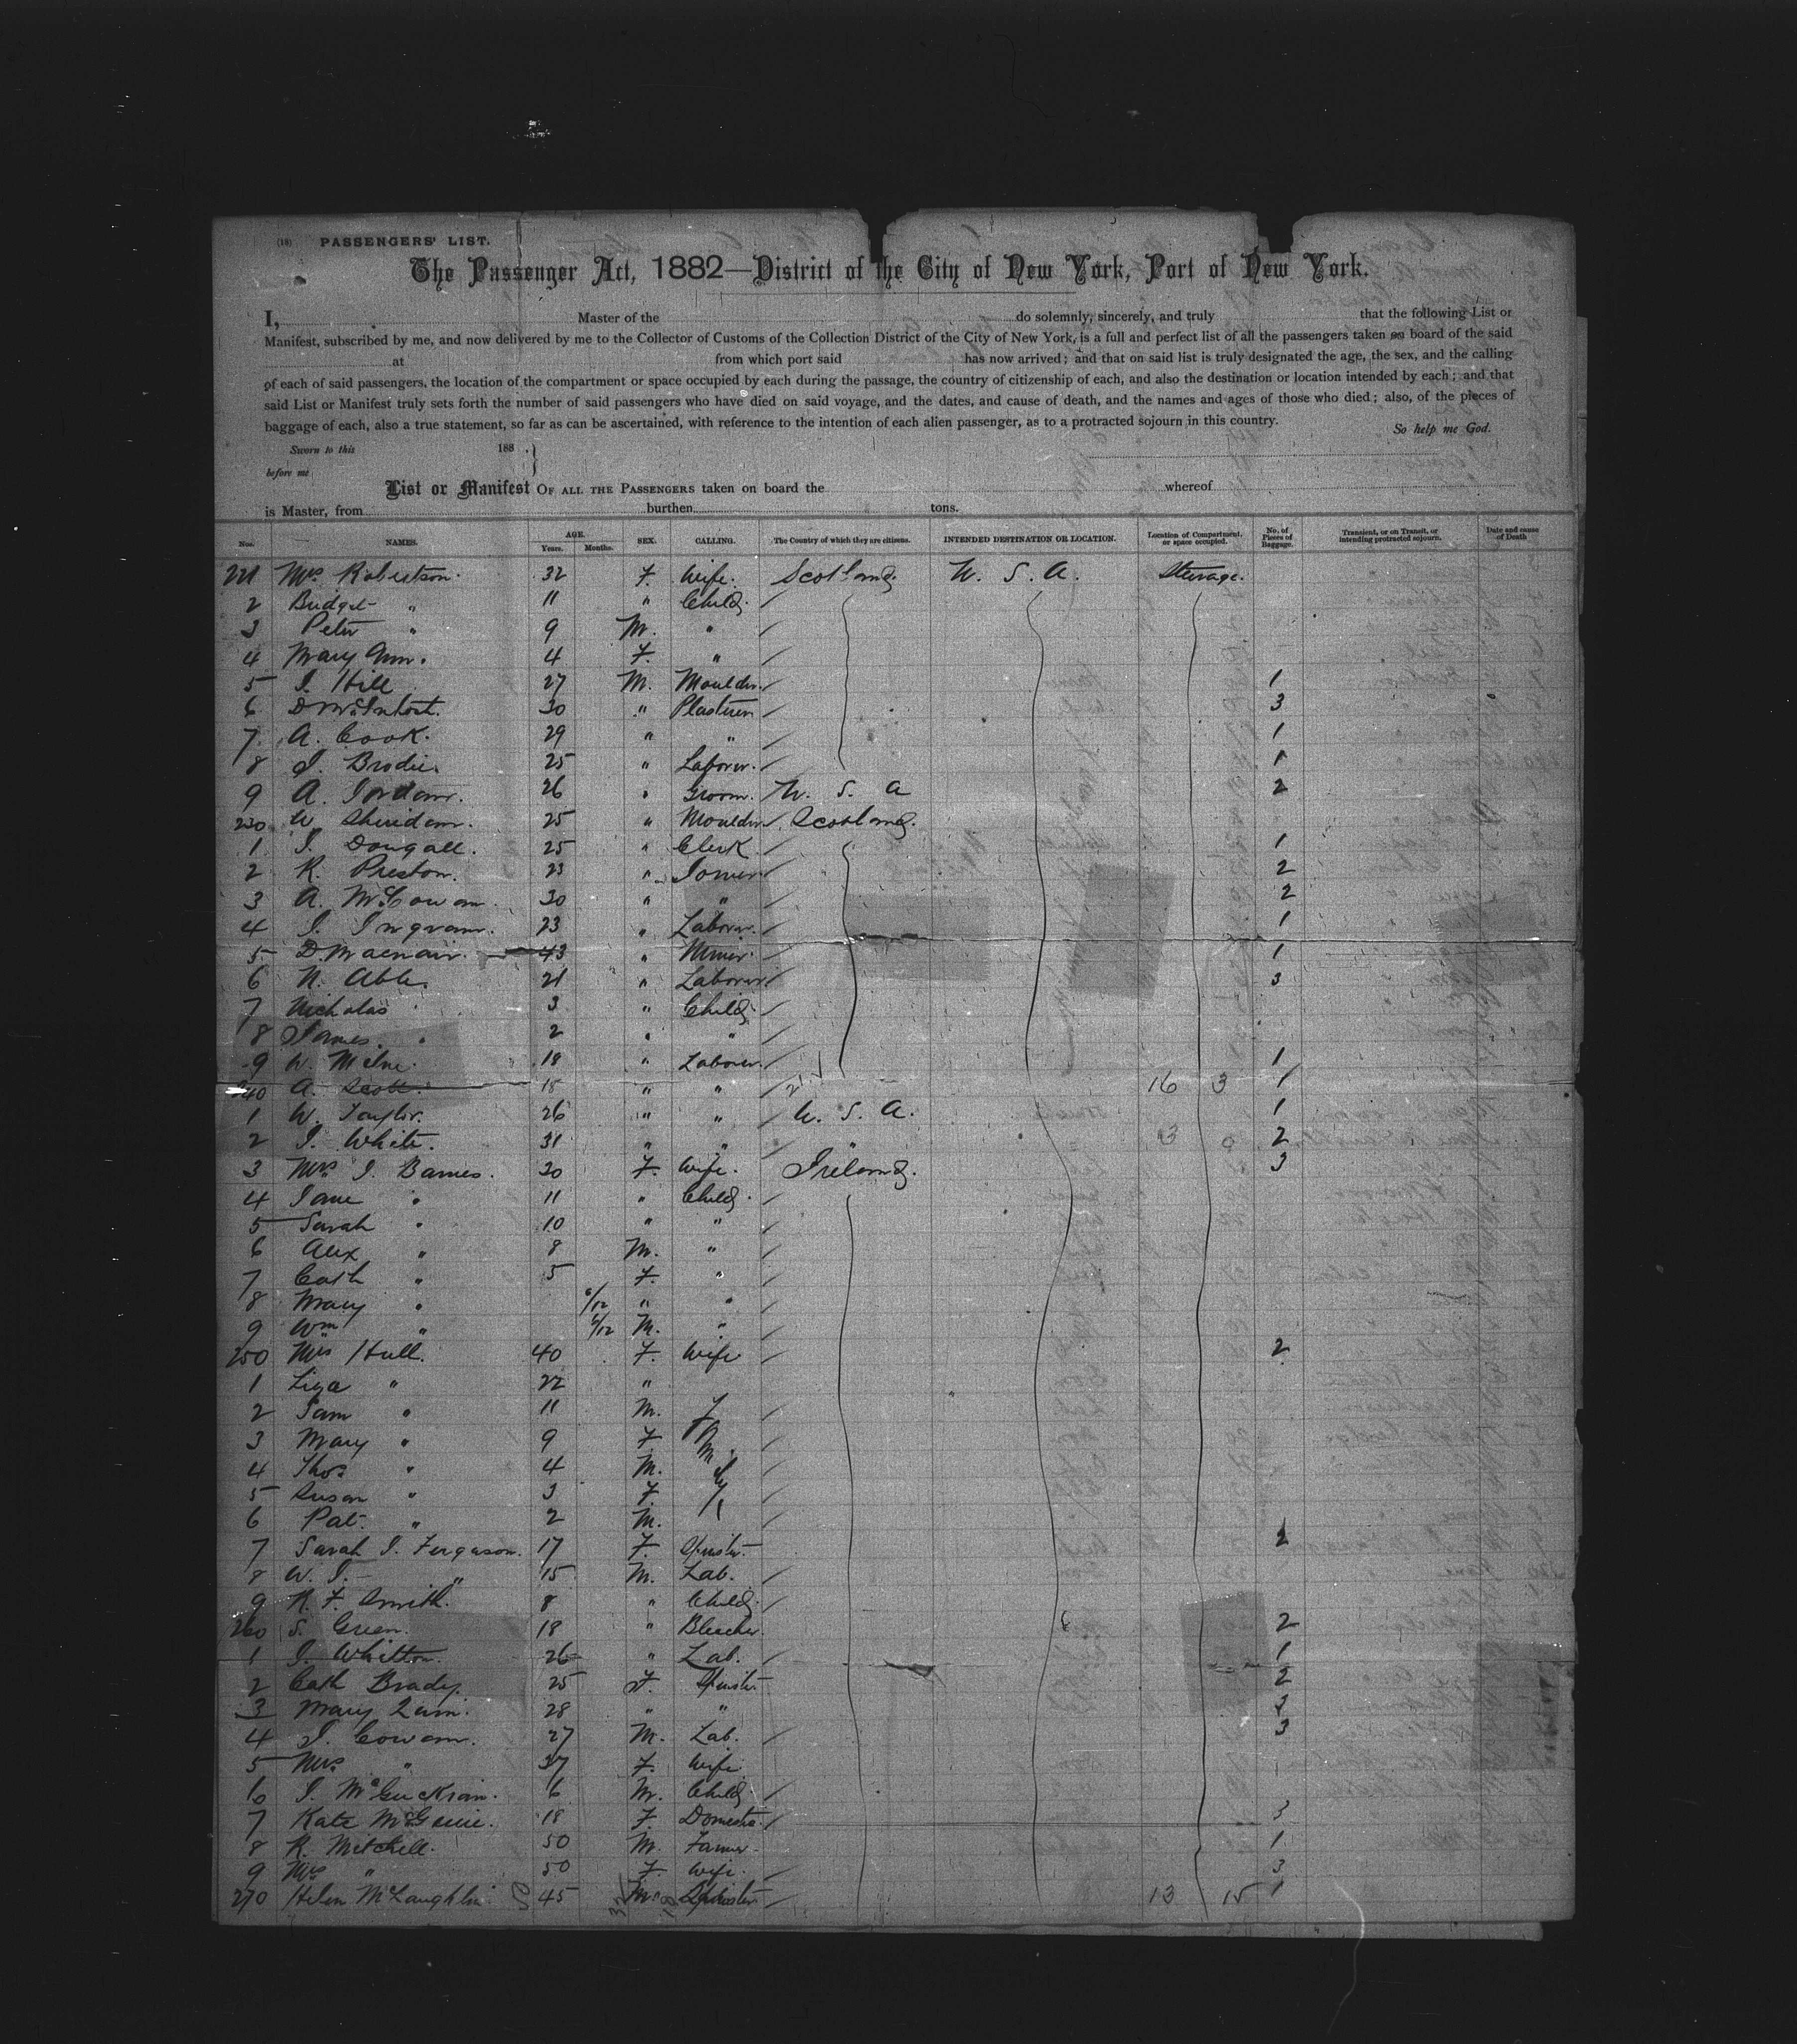 (18) PASSENGERS' LIST.
The Passenger Act, 1882—District of the City of New York, Port of New York.
I, Master of the do solemnly, sincerely, and truly that the following List or
Manifest, subscribed by me, and now delivered by me to the Collector of Customs of the Collection District of the City of New York, is a full and perfect list of all the passengers taken on board of the said
at from which port said has now arrived; and that on said list is truly designated the age, the sex, and the calling
of each of said passengers, the location of the compartment or space occupied by each during the passage, the country of citizenship of each, and also the destination or location intended by each; and that
said List or Manifest truly sets forth the number of said passengers who have died on said voyage, and the dates, and cause of death, and the names and ages of those who died; also, of the pieces of
baggage of each, also a true statement, so far as can be ascertained, with reference to the intention of each alien passenger, as to a protracted sojourn in this country. So help me God.
Sworn to this 188 .
before me
List or Manifest OF ALL THE PASSENGERS taken on board the whereof
is Master, from burthen tons.
Nos. NAMES. AGE. Years. Months. SEX. CALLING. The Country of which they are citizens. INTENDED DESTINATION OR LOCATION. Location of Compartment, or space occupied. No. of Pieces of Baggage. Transient, or on Transit, or intending protracted sojourn. Date and cause of Death
221 Mrs Robertson. 32 F. Wife. Scotland U. S. A. Steerage.
2 Bridget " 11 " Child
3 Peter " 9 M. "
4 Mary Ann. 4 F. "
5 J. Hill 27 M. Moulder 1
6 D McIntosh. 30 " Plasterer 3
7 A. Cook. 29 " " 1
8 J. Brodie. 25 " Laborer. 1
9 A. Jordan. 26 " Groom. U. S. A 2
230 W Sheridan. 25 " Moulder Scotland.
1 J. Dougall. 25 " Clerk 1
2 R. Preston. 23 " Joiner 2
3 A. McCowan. 30 " " 2
4 J. Ingram. 23 " Laborer. 1
5 D. Macnair. 43 " Miner. 1
6 N. Able. 21 " Laborer 3
7 Nicholas 3 " Child
8 James. " 2 " "
9 W. 18 " Laborer. 1
240 A. Scott. 18 " " 16 3 1
1 W. Taylor. 26 " " U. S. A. 1
2 J. White. 31 " " " 13 0 2
3 Mrs J. Barnes. 30 F. Wife. Ireland. 3
4 Jane " 11 " Child
5 Sarah " 10 " "
6 Alex " 8 M. "
7 Cath " 5 F. "
8 Mary " 6/12 " "
9 Wm " 6/12 M. "
250 Mrs Hull. 40 F. Wife 2
1 Liza " 22 "
2 Sam " 11 M. Family
3 Mary " 9 F.
4 Thos " 4 M.
5 Susan " 3 F.
6 Pat. " 2 M.
7 Sarah J. Ferguson. 17 F. Spinster. 2
8 W. J. " 15 M. Lab.
9 R. F. Smith. 8 " Child
260 S. Green. 18 " Bleacher. 2
1 J. Whitton. 26 " Lab. 1
2 Cath Brady. 25 F. Spinster 2
3 Mary Quin. 28 " " 2
4 J. Cowan. 27 M. Lab. 3
5 Mrs " 37 F. Wife
6 J. McGuckian. 6 M. Child
7 Kate 18 F. Domestic. 3
8 R. Mitchell. 50 M. Farmer 1
9 Mrs " 50 F. Wife. 3
270 Helen McLaughlin 45 Spinster 13 15 1